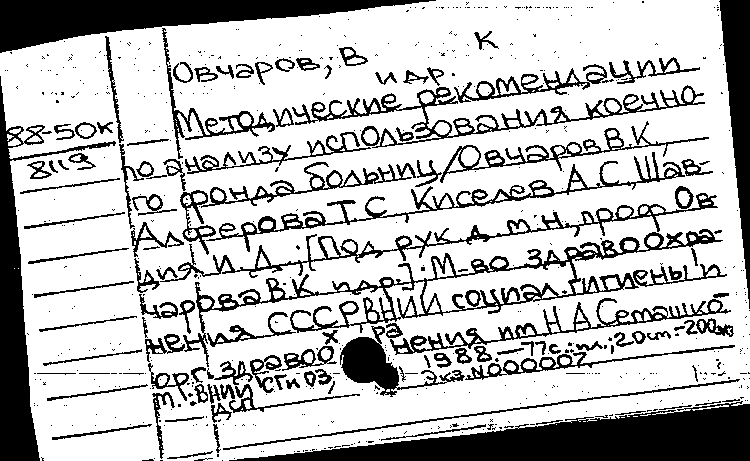 К
Овчаров, В
и др.
88-50к
8119
Методические рекомендации
по анализу использования коечно-
го фонда больниц/Овчаров В.К.,
Алферова Т.С., Киселев А.С., Шав-
дия И.Д.; [Под рук. д.м.н., проф Ов-
чарова В.К. и др.]; М-во здравоохра-
нения СССР, ВНИИ социал. гигиены и
орг. здравоохранения им Н.А.Семашко.
М.: ВНИИ СГиОЗ, 1988.—77с.: ил.; 20см.-200экз
ДСП. Экз.N000007.